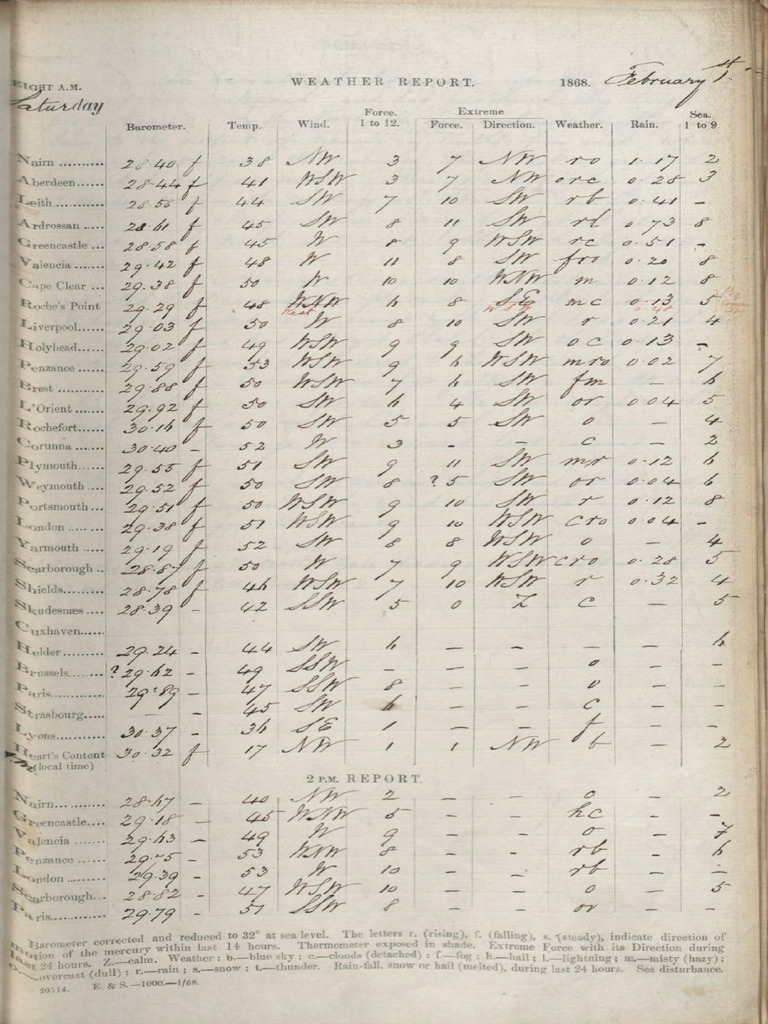 EIGHT A.M. WEATHER REPORT. 1868. February 1st.
Saturday
Barometer. Temp. Wind. Force. 1 to 12. Extreme Force. Direction. Weather. Rain. Sea. 1 to 9
Nairn .......... 28.40 f 38 NW 3 7 NW ro 1.17 2
Aberdeen ...... 28.44 f 41 WSW 3 7 NW orc 0.28 3
Leith .......... 28.56 f 44 SW 7 10 SW rb 0.41 -
Ardrossan ..... 28.61 f 45 SW 8 11 SW rl 0.73 8
Greencastle ... 28.58 f 45 W 8 9 WSW rc 0.51 -
Valencia ....... 29.42 f 48 W 11 8 SW fro 0.20 8
Cape Clear .... 29.38 f 50 W 10 10 WNW m 0.12 8
Roche's Point 29.29 f 48 WNW 6 8 SE mc 0.13 5
Liverpool ...... 29.03 f 50 W 8 10 SW r 0.21 4
Holyhead ...... 29.02 f 49 WSW 9 9 SW oc 0.13 -
Penzance ...... 29.59 f 53 WSW 9 6 WSW mro 0.02 7
Brest .......... 29.88 f 50 WSW 7 6 SW fm - 6
L'Orient ....... 29.92 f 50 SW 6 4 SW or 0.04 5
Rochefort ...... 30.16 f 50 SW 5 5 SW o - 4
Corunna ....... 30.40 - 52 W 3 - - c - 2
Plymouth ...... 29.55 f 51 SW 9 11 SW mr 0.12 6
Weymouth .... 29.52 f 50 SW 8 ?5 SW or 0.04 6
Portsmouth ... 29.51 f 50 WSW 9 10 SW r 0.12 8
London ........ 29.38 f 51 WSW 9 10 WSW cro 0.04 -
Yarmouth ..... 29.19 f 52 SW 8 8 WSW o - 4
Scarborough ... 28.87 f 50 W 7 9 WSW cro 0.28 5
Shields ........ 28.78 f 46 WSW 7 10 WSW r 0.32 4
Skudesnæs ..... 28.39 - 42 SSW 5 0 Z c - 5
Cuxhaven ......
Helder ......... 29.24 - 44 SW 6 - - - - 6
Brussels ....... ? 29.62 - 49 SSW - - - o - -
Paris .......... 29.89 - 47 SSW 8 - - o - -
Strasbourg ..... - - 45 SW 6 - - c - -
Lyons .......... 30.37 - 36 SE 1 - - f - -
Heart's Content 30.32 f 17 NW 1 1 NW b - 2
(local time)
2 P.M. REPORT.
Nairn .......... 28.67 - 40 NW 2 - - o - 2
Greencastle .... 29.18 - 45 WNW 5 - - hc - -
Valencia ....... 29.63 - 49 W 9 - - o - 7
Penzance ...... 29.75 - 53 WNW 8 - - rb - 6
London ........ 29.39 - 53 W 10 - - rb - -
Scarborough ... 28.82 - 47 WSW 10 - - o - 5
Paris .......... 29.79 - 51 SW 8 - - or - -
Barometer corrected and reduced to 32° at sea level. The letters r. (rising), f. (falling), s. (steady), indicate direction of
motion of the mercury within last 14 hours. Thermometer exposed in shade. Extreme Force with its Direction during
last 24 hours. Z.—calm. Weather: b.—blue sky; c.—clouds (detached); f.—fog; h.—hail; l.—lightning; m.—misty (hazy);
o.—overcast (dull); r.—rain; s.—snow; t.—thunder. Rain-fall, snow or hail (melted), during last 24 hours. Sea disturbance.
20514. E. & S.—1000.—1/68.